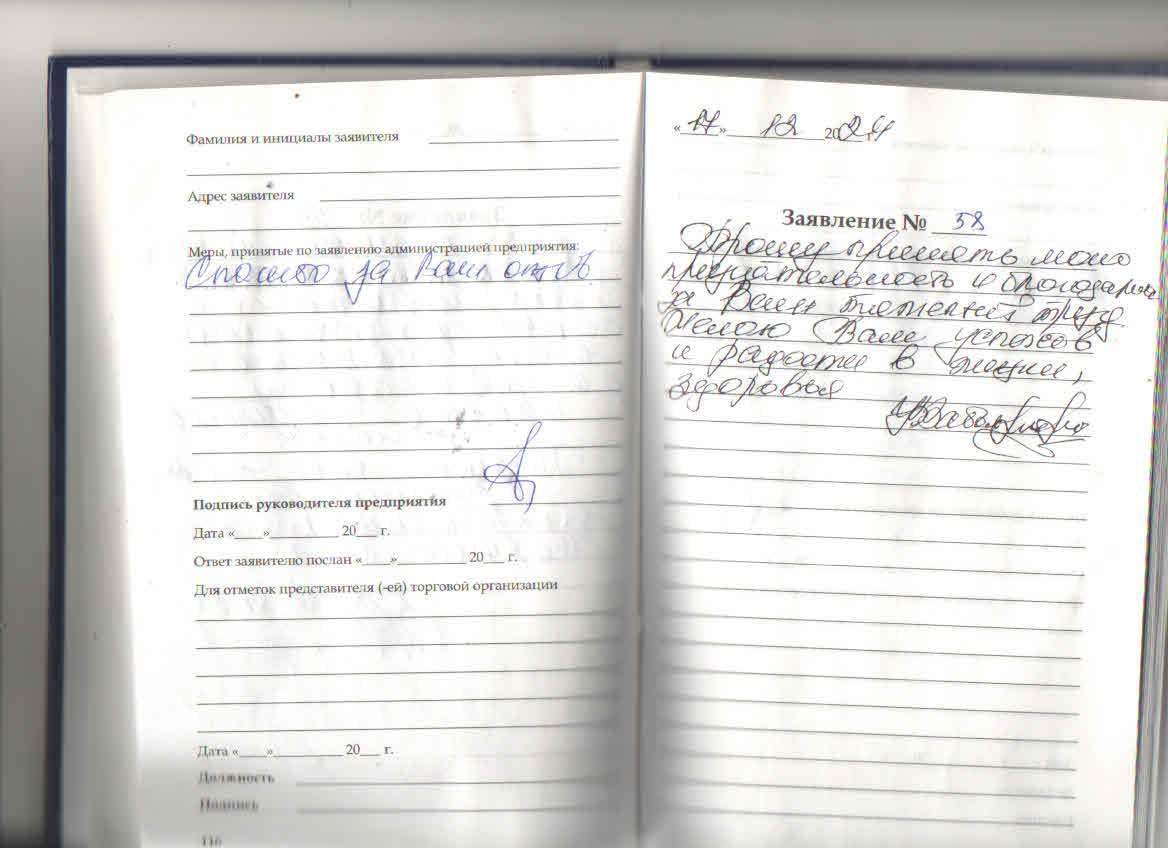 Фамилия и инициалы заявителя
Адрес заявителя
Меры, принятые по заявлению администрацией предприятия:
Спасибо за Ваш отзыв
Подпись руководителя предприятия
Дата «____»__________ 20___ г.
Ответ заявителю послан «____»__________ 20___ г.
Для отметок представителя (-ей) торговой организации
Дата «____»__________ 20___ г.
Должность
Подпись
116
«17» 12 2024
Заявление № 58
Прошу принять мою
признательность и благодарность
за Ваш труд
Желаю Вам успехов
и радости в жизни,
здоровья